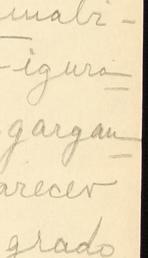 mabi-
igura
gargan
arecer
grado